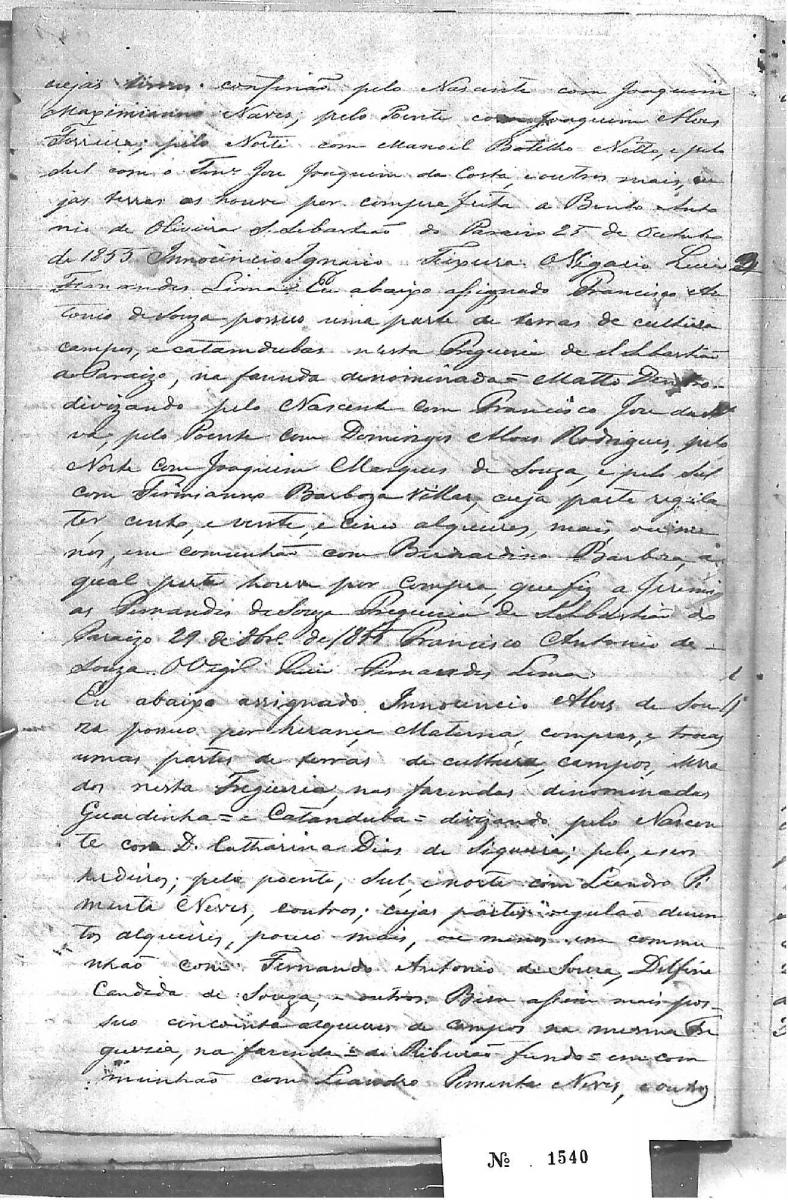 cujas terras confinão pelo Nascente com Joaquim
Maximianno Naves; pelo Poente com Joaquim Alves
Ferreira; pelo Norte com Manoel Botelho Netto, e pelo
Sul com o Tene José Joaquim da Costa, e outros mais, cu
jas terras as houve por compra feita a Bento Anto
nio de Oliveira S. Sebastião do Paraizo 25 de Outubro
de 1855 Innocencio Ignacio Teixeira O Vigario Luis
Fernandes Lima. Eu abaixo assignado Francisco An
tonio de Souza possuo uma parte de terras de cultura
campos, e catandubas nesta Freguezia de S Sebastião
do Paraizo, na fazenda denominada = Matto Dentro =
divizando pelo Nascente com Francisco Jose da Sil
va, pelo Poente com Domingos Alves Rodrigues, pelo
Norte com Joaquim Marques de Souza, e pelo Sul
com Firmianno Barboza Villar, cuja parte regula
ter, cento, e vente, e cinco alqueires, mais, ou me
nos, em comunhão com Bernardino Barboza, a
qual parte houve por compra, que fiz a Jeremi
as Fernandes de Souza Freguezia de S. Sebastião do
Paraizo 29 de 8br. de 1855 Francisco Antonio de
Souza. O Vigr Luis Fernandes Lima
Eu abaixo assignado Innocencio Alves de Sou
za possuo por herança Materna, compras, e trocas
umas partes de terras de cultura, campos, serra
dos nesta Freguezia, nas fazendas denominadas
Guardinha = e Catanduba = divizando pelo Nascen
te com D. Catharina Dias de Siqueira; pelo, e seos
herdeiros; pelo poente, Sul e norte com Leandro Pi
menta Neves, e outros; cujas partes regulão duzen
tos alqueires, pouco mais, ou menos em commu
nhão com Fernando Antonio de Souza, Delfina
Candida de Souza, e outros. Bem assim mais pos
suo cincoenta alqueires de campos na mesma Fre
guezia, na fazenda = do Ribeirão fundo = em com
munhão com Leandro Pimenta Neves, e outros
Nº 1540